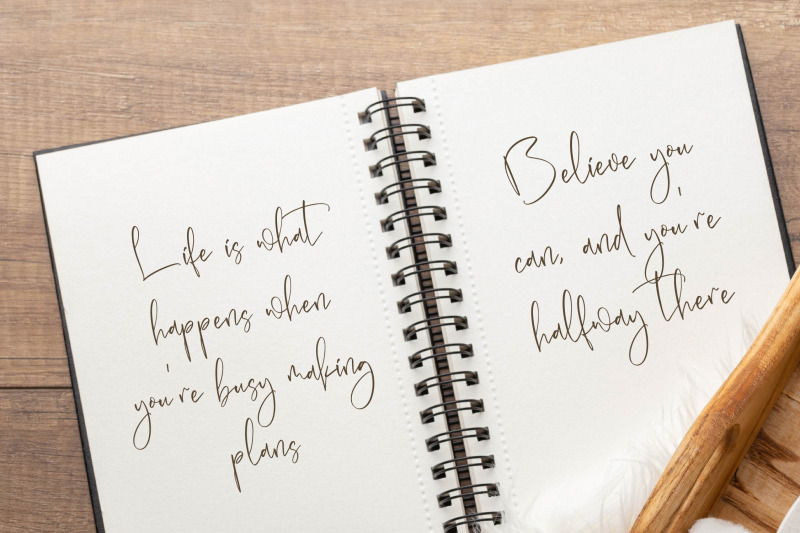 Life is what
happens when
you're busy making
plans
Believe you
can, and you're
halfway there